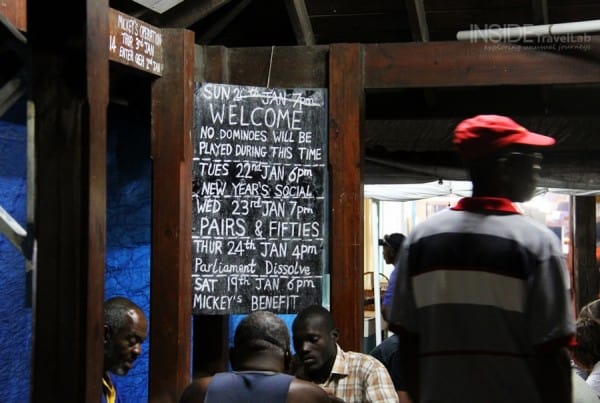 MICKEY'S OPERATION
THUR 3rd JAN
ENTER
SUN 20th JAN 7pm
WELCOME
NO DOMINOES WILL BE
PLAYED DURING THIS TIME
TUES 22nd JAN 6pm
NEW YEAR'S SOCIAL
WED 23rd JAN 7pm
PAIRS & FIFTIES
THUR 24th JAN 4pm
Parliament Dissolve
SAT 19th JAN 6pm
MICKEY'S BENEFIT
INSIDE TravelLab
exploring unusual journeys